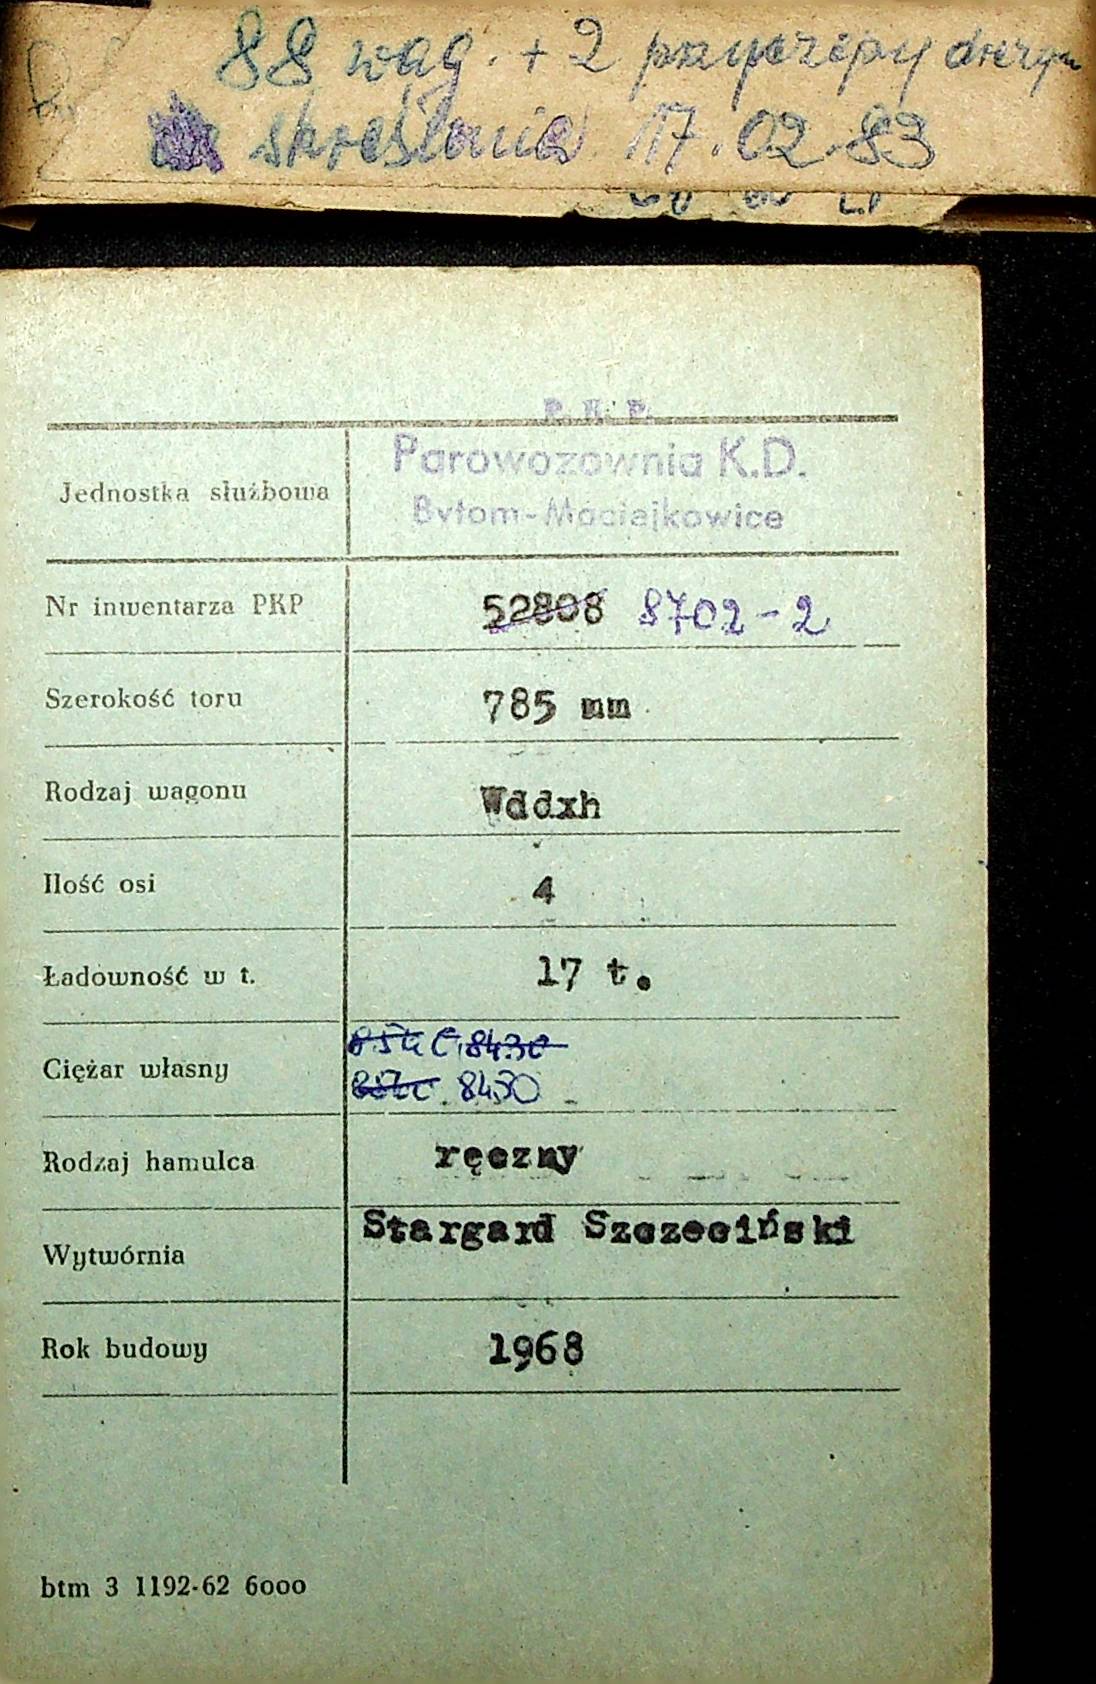 88 wag. + 2 przyczepy drezyn
skreślenia 17.02.83
P. K. P.
Parowozownia K.D.
Jednostka służbowa
Bytom-Maciejkowice
Nr inwentarza PKP 52808 8702-2
Szerokość toru 785 mm
Rodzaj wagonu Wddxh
Ilość osi 4
Ładowność w t. 17 t.
8430
Ciężar własny
8430
Rodzaj hamulca ręczny
Stargard Szczeciński
Wytwórnia
Rok budowy 1968
btm 3 1192-62 6000